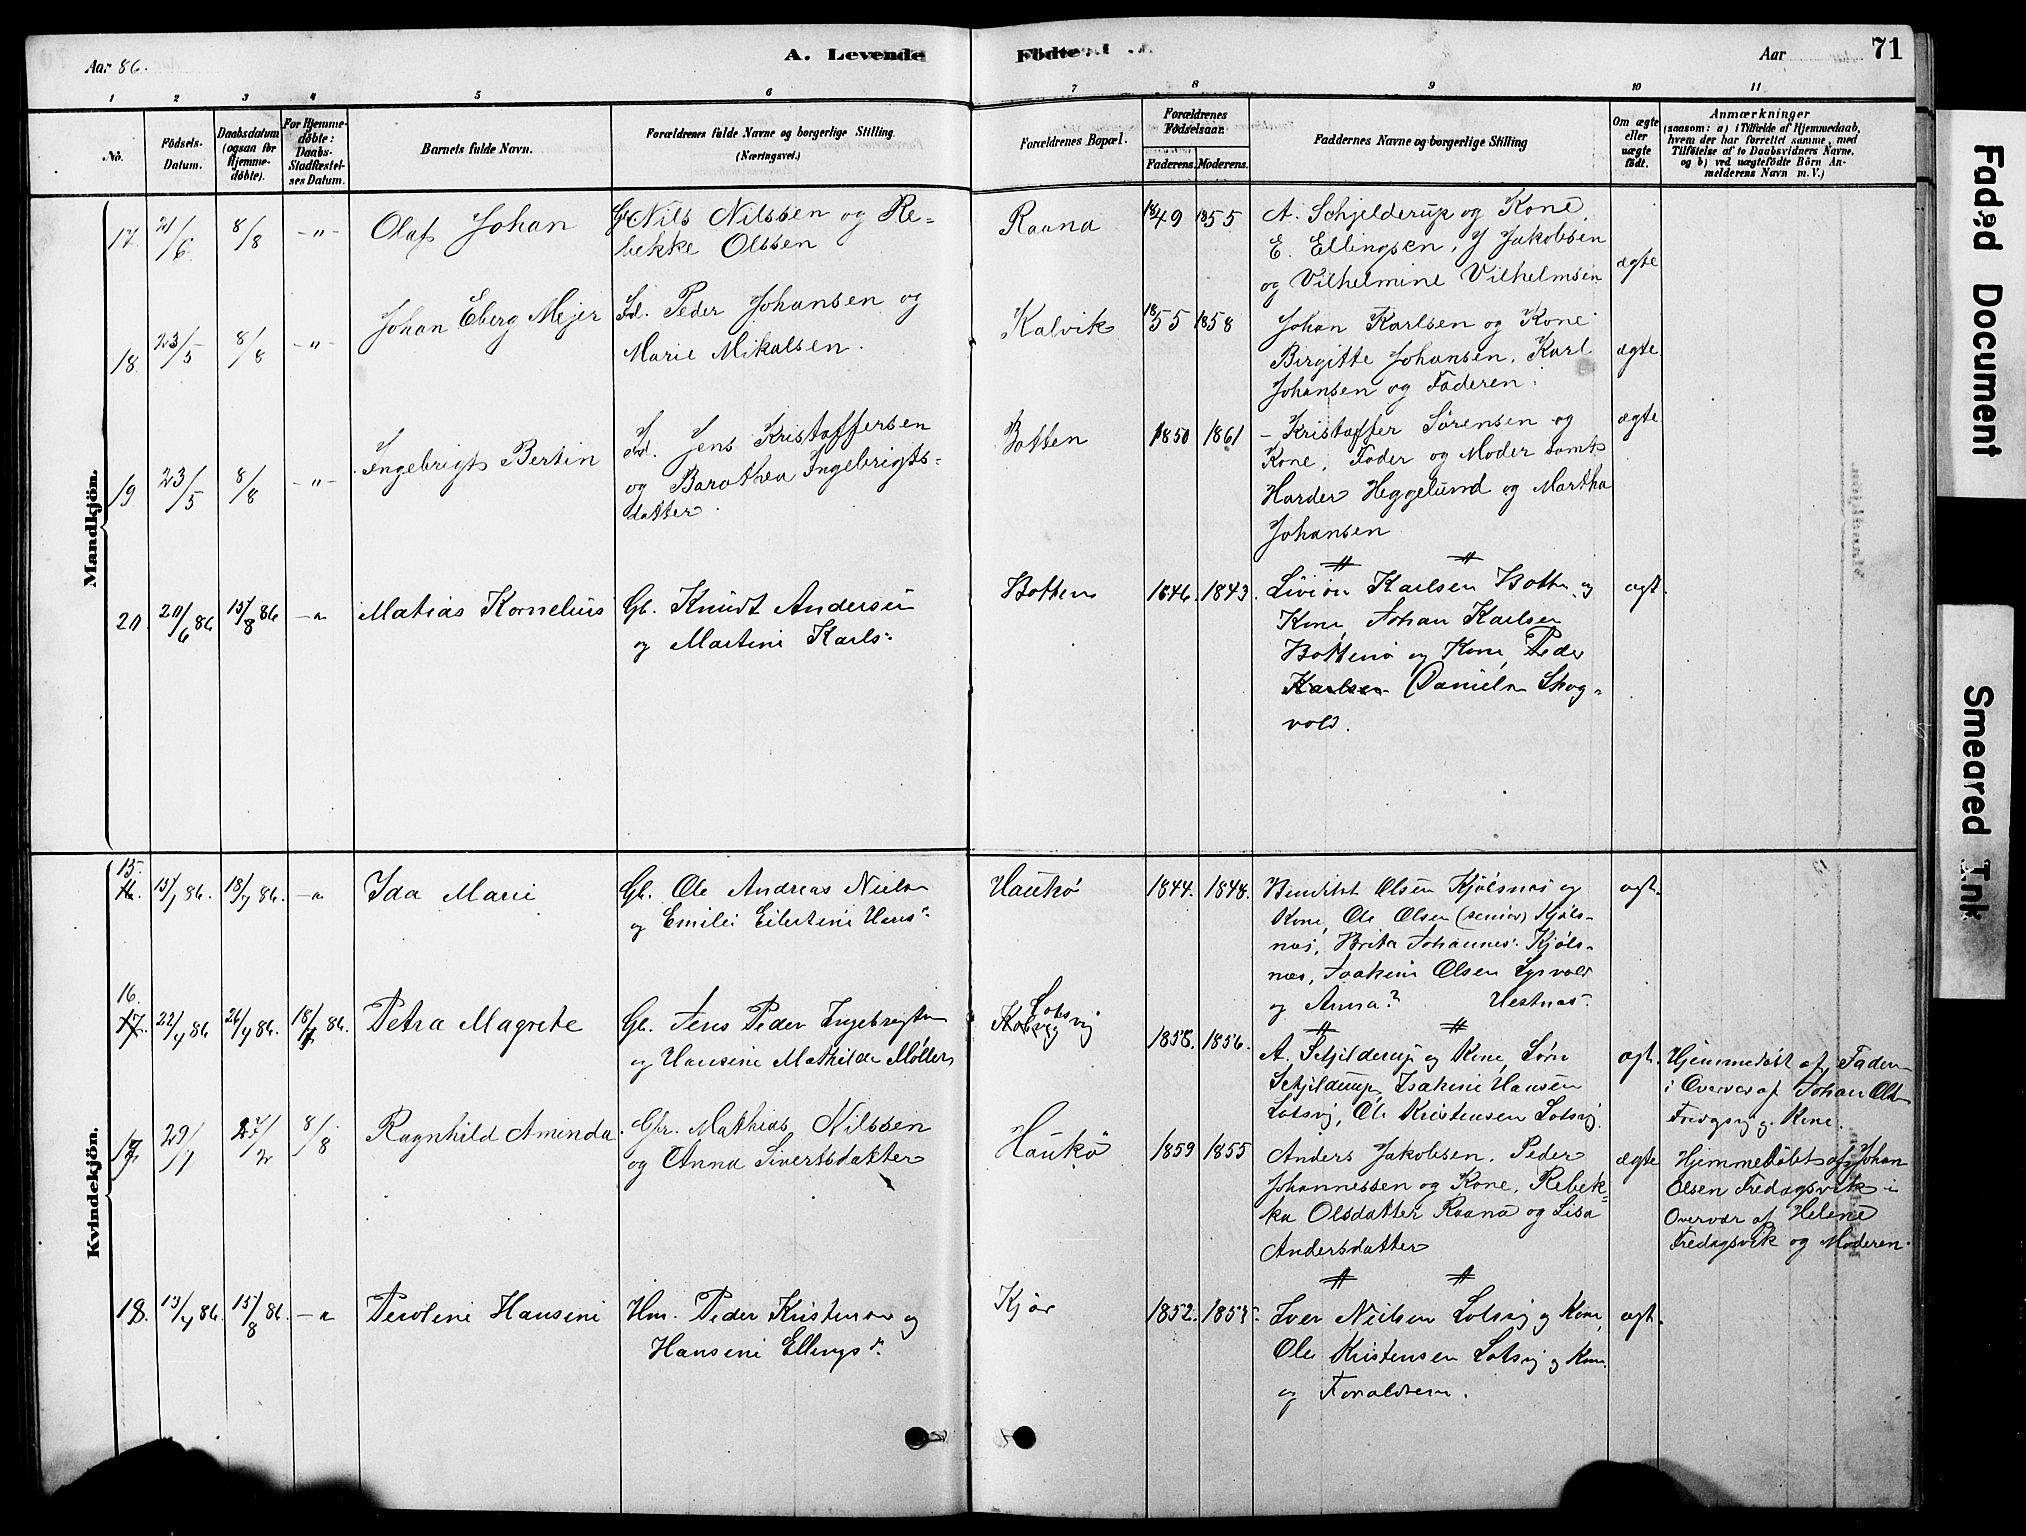 Aar 86.
A. Levende Födte.
Aar
71
1 2 3 4 5 6 7 8 9 10 11
No.
Födsels-
Datum.
Daabsdatum
(ogsaa for
Hjemme-
døbte).
For Hjemme-
døbte:
Daabs-
Stadfæstel-
ses Datum.
Barnets fulde Navn.
Forældrenes fulde Navne og borgerlige Stilling.
(Næringsvei.)
Forældrenes Bopæl.
Forældrenes
Födselsaar.
Faderens. Moderens.
Faddernes Navne og borgerlige Stilling
Om ægte
eller
uægte
født.
Anmærkninger
(saasom: a) i Tilfælde af Hjemmedaab,
hvem der har forrettet samme, med
Tilføielse af to Daabsvidners Navne.
og b) ved uægtefödte Börn An-
melderens Navn m. V.)
Mandkjön.
17. 21/6 8/8 -"- Olaf Johan
Nils Nilssen og Re-
bekke Olssen
Raana 1849 1855
A. Schjelderup og Kone,
E. Ellingsen, J Jakobsen
og Vilhelmine Vilhelmsen
ægte
18. 23/5 8/8 -"- Johan Eberg Mejer
Peder Johansen og
Marie Mikalsen.
Kalvik 1855 1858
Johan Karlsen og Kone
Birgitte Johansen, Karl
Johansen og Faderen.
ægte.
19 23/5 8/8 -"- Ingebrigt Bertin
Jens Kristoffersen
og Barothea Ingebrigts-
datter.
Botten 1850 1861
- Kristoffer Sørensen og
Kone, Fader og Moder samt
Harder Heggelund og Martha
Johansen
ægte
20. 20/6 86 15/8 86 Matias Kornelius
Gb. Knudt Andersen
og Martini Karls.
Botten 1846. 1843.
Karlsen Botten og
Kone, Johan Karlsen
og Kone, Peder
Karlsen Daniels Skog-
vold.
ægt.
Kvindekjön.
15. 86. 18/7 86. Ida Marie
Gb. Ole Andreas Niels
og Emilie Eilertine Hans
Haukø 1844. 1848.
Benedikt Olsen Kjølsnæs og
Kone, Ole Olsen (senior) Kjøls-
næs, Brita Johannes. Kjøls-
næs, Joakim Olsen Lysvold
og Anna? Vestnæs.
ægt.
16. 22/4 86 26/4 86. 86. Petra Magrete
Gb. Jens Peder Ingebrigts
og Hansine Mathilde Møller
Lotsvig
1858. 1856.
A. Schjelderup og Kone, Sørn
Schjelderup, Isakine Hansen
Lotsvig, Ole Kristensen Lotsvig.
ægt.
Hjemmedøbt af Faderen
i Overvær af Johan Ols
Fredgsvig og Kone.
17 29/1 27/2 8/8 Ragnhild Aminda.
Mathias Nilssen
og Anna Sivertsdatter
Haukø 1859 1855
Anders Jakobsen, Peder
Johannessen og Kone, Rebek-
ka Olsdatter Raana og Lisa
Andersdatter
ægte
Hjemmedöbt af Johan
Olsen Fredagsvik i
Overvær af Helene
Fredagsvik og Moderen.
18. 13/4 86 15/8 86. Peroline Hansine
Hm. Peder Kristensen og
Hansine Ellings
Kjør 1852. 1855
Iver Nielsen Lotsvig og Kone,
Ole Kristensen Lotsvig og Kone
og Foraldrene.
ægt.
Faded Document
Smeared Ink